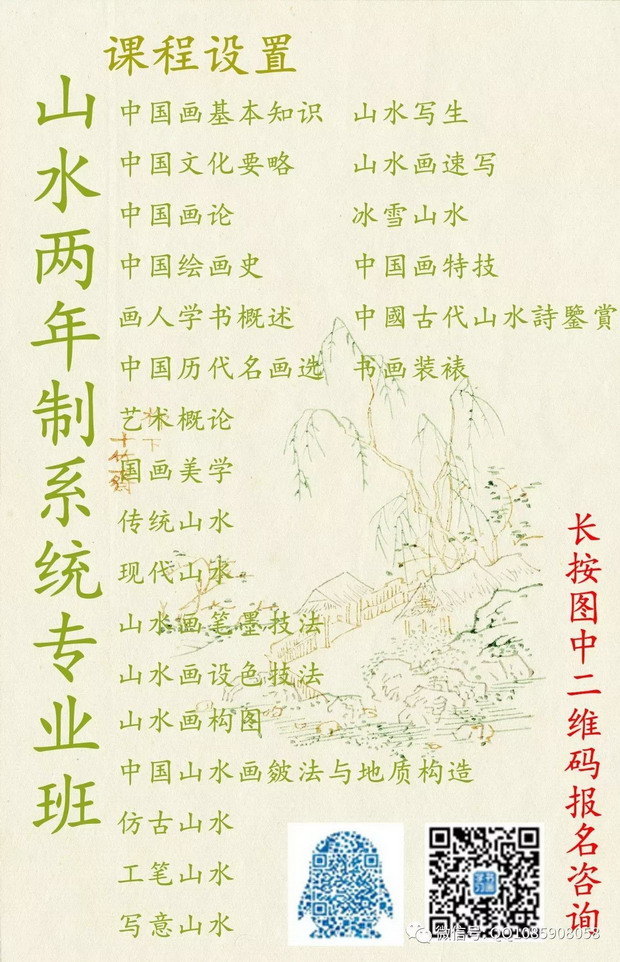 课程设置
山水两年制系统专业班
中国画基本知识
中国文化要略
中国画论
中国绘画史
画人学书概述
中国历代名画选
艺术概论
国画美学
传统山水
现代山水
山水画笔墨技法
山水画设色技法
山水画构图
中国山水画皴法与地质构造
仿古山水
工笔山水
写意山水
山水写生
山水画速写
冰雪山水
中国画特技
中國古代山水詩鑒賞
书画装裱
长按图中二维码报名咨询
微信号: QQ1085908058